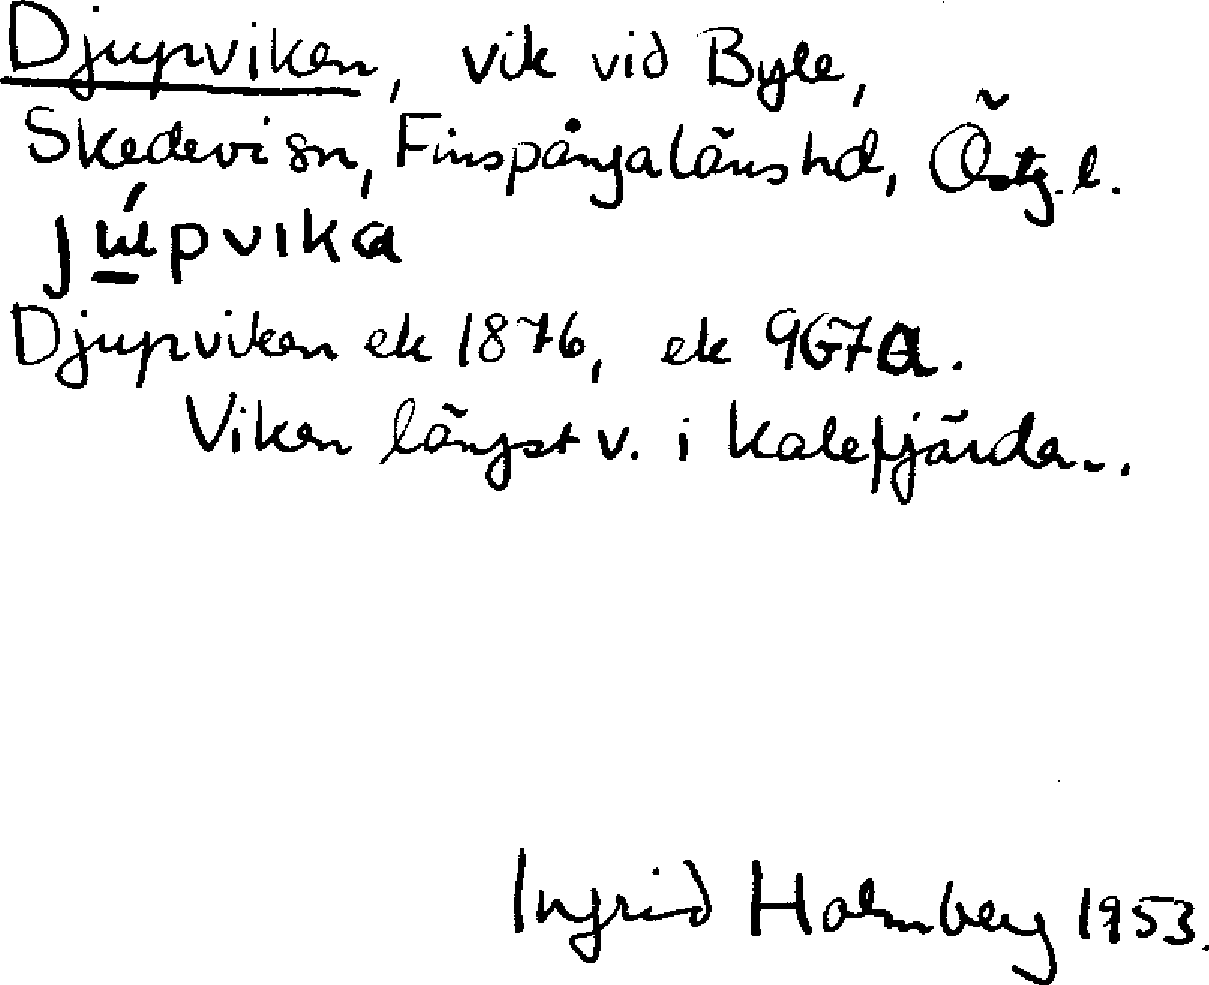 Djupviken, vik vid Byle,
Skedevi sn, Finspånga läns hd, Östg. l.
júpvika
Djupviken ek 1876, ek 967a.
Viken längst v. i Kalefjärden.
Ingrid Holmberg 1953.